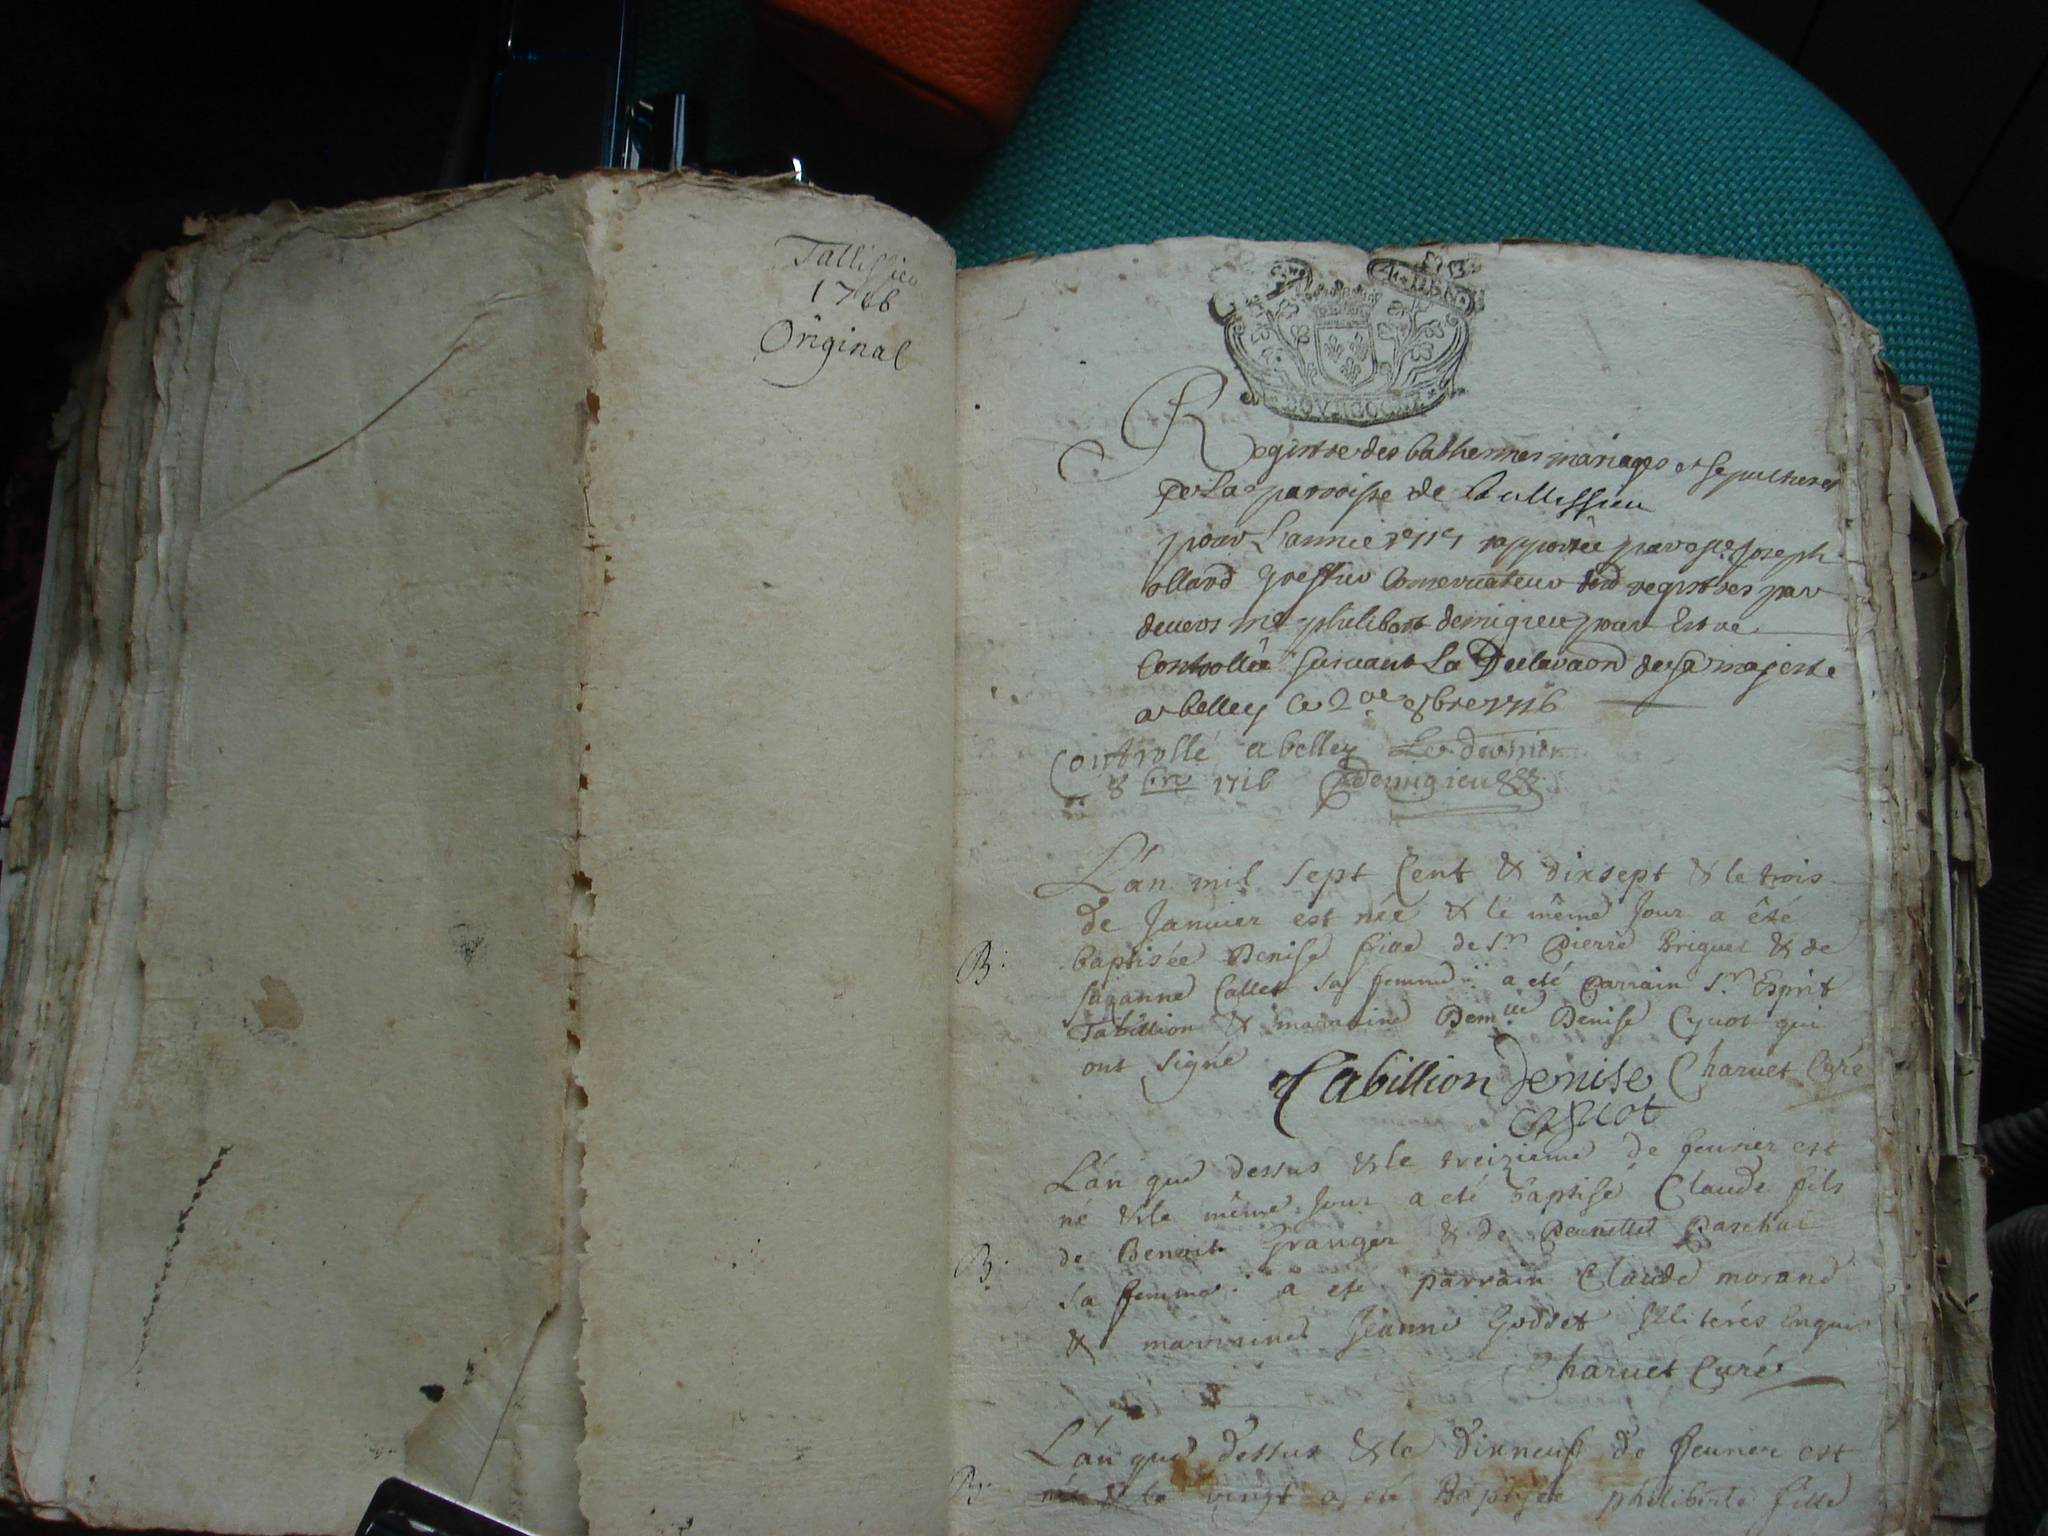 Tallissieu
1716
Original
Registre des bathemes mariages et sepultures
De La paroisse de Tallissieu
pour L'annee 1717 rapportée par Joseph
ollard greffier Conservateur desd registres par
devers me philibert demigieu pour Estre
Controllée suivant La Declaraon de sa majeste
a belley le 8bre 1716
Controllé a belley Le dernier
8bre 1716 Demigieu
L'an mil sept Cent & dixsept & le trois
de Janvier est née & le même Jour a été
B. baptisée Denise fille de Sr Pierre Briguet & de
Suzanne Callet sa femme: a eté Parrain Sr Esprit
Tabillion & marraine Demlle Denise Cyuot qui
ont signé Tabillion Denise Charuet Curé
Cyuot
L'an que dessus & le treizieme de feurier est
né & le même Jour a eté baptisé Claude fils
B. de Benoit Granger & de Pernette Paschal
sa femme: a eté parrain Claude morand
& marraine Jeanne Goddet Illiterés Enquis
Charuet Curé
L'an que dessus & le dixneuf de feurier est
B. née & le vingt a eté Baptisée philiberte fille